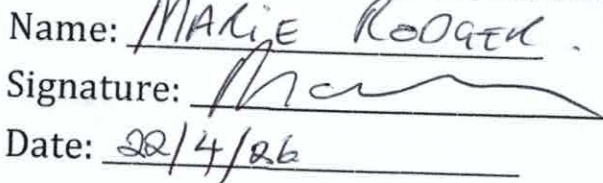 Name: MARIE RODGER.
Signature:
Date: 22/4/26